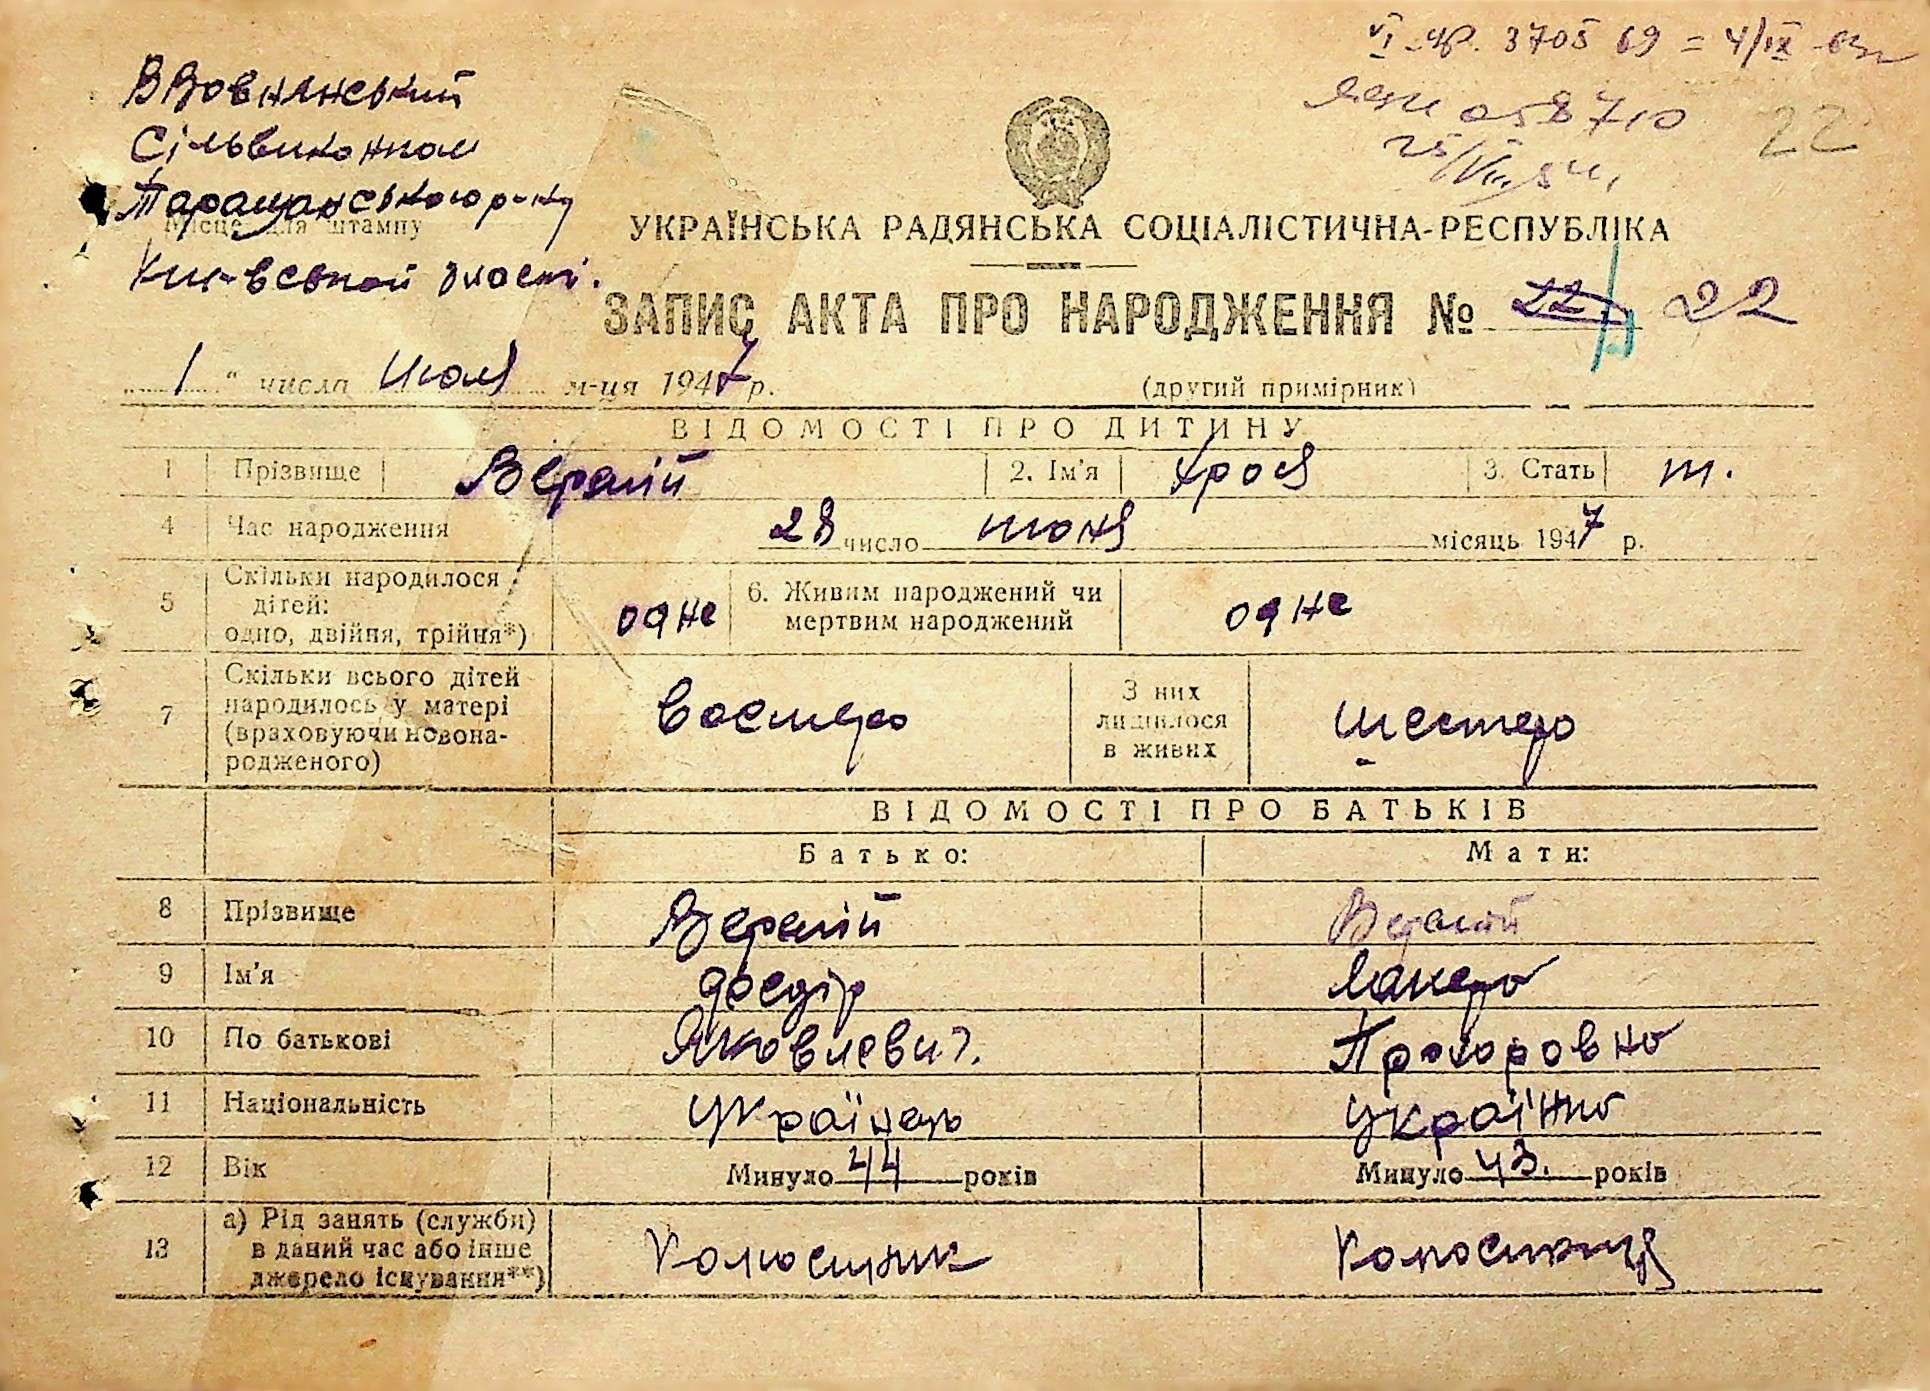 VI-ЯР. 370569 = 4/IX-63
058710
22
ВВовнянський
Сільвиконком
Таращанського р-ну
Місце для штампу
Київської області.
УКРАЇНСЬКА РАДЯНСЬКА СОЦІАЛІСТИЧНА-РЕСПУБЛІКА
ЗАПИС АКТА ПРО НАРОДЖЕННЯ № 22 22
„ 1 “ числа июля м-ця 1947 р. (другий примірник)
ВІДОМОСТІ ПРО ДИТИНУ
1 Прізвище Вермій 2. Ім'я Хрося 3. Стать ж.
4 Час народження 28 число июня місяць 1947 р.
5 Скільки народилося дітей: одно, двійня, трійня*) одне 6. Живим народжений чи мертвим народжений одне
7 Скільки всього дітей народилось у матері (враховуючи новонародженого) восмеро З них лишилося в живих шестеро
ВІДОМОСТІ ПРО БАТЬКІВ
Батько: Мати:
8 Прізвище Вермій Вермій
9 Ім'я Федір
10 По батькові Яковлевич. Прохоровна
11 Національність українець українка
12 Вік Минуло 44 років Минуло 43. років
13 а) Рід занять (служби) в даний час або інше джерело існування**) Колхосник Колхосниця